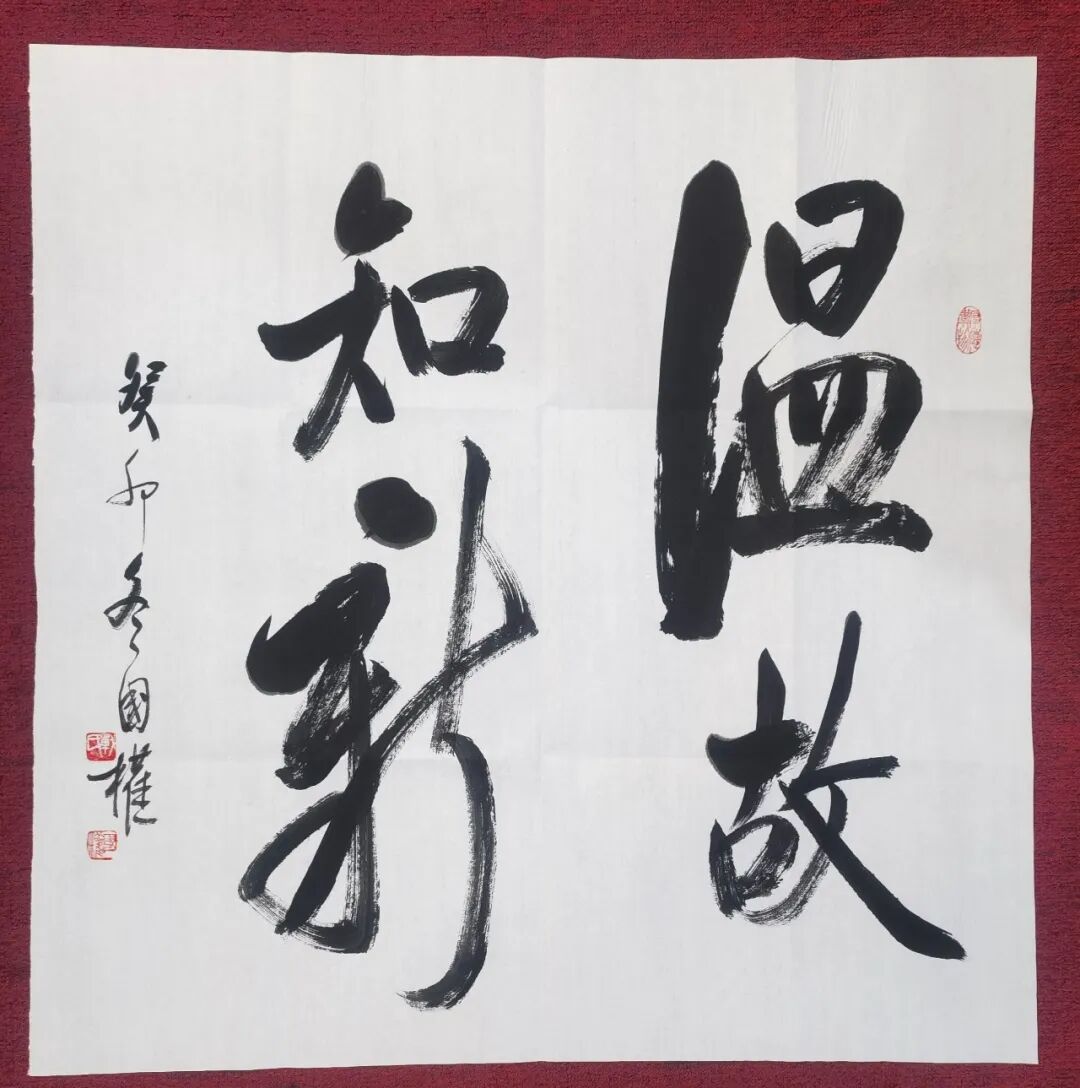 温故
知新
癸卯冬国權